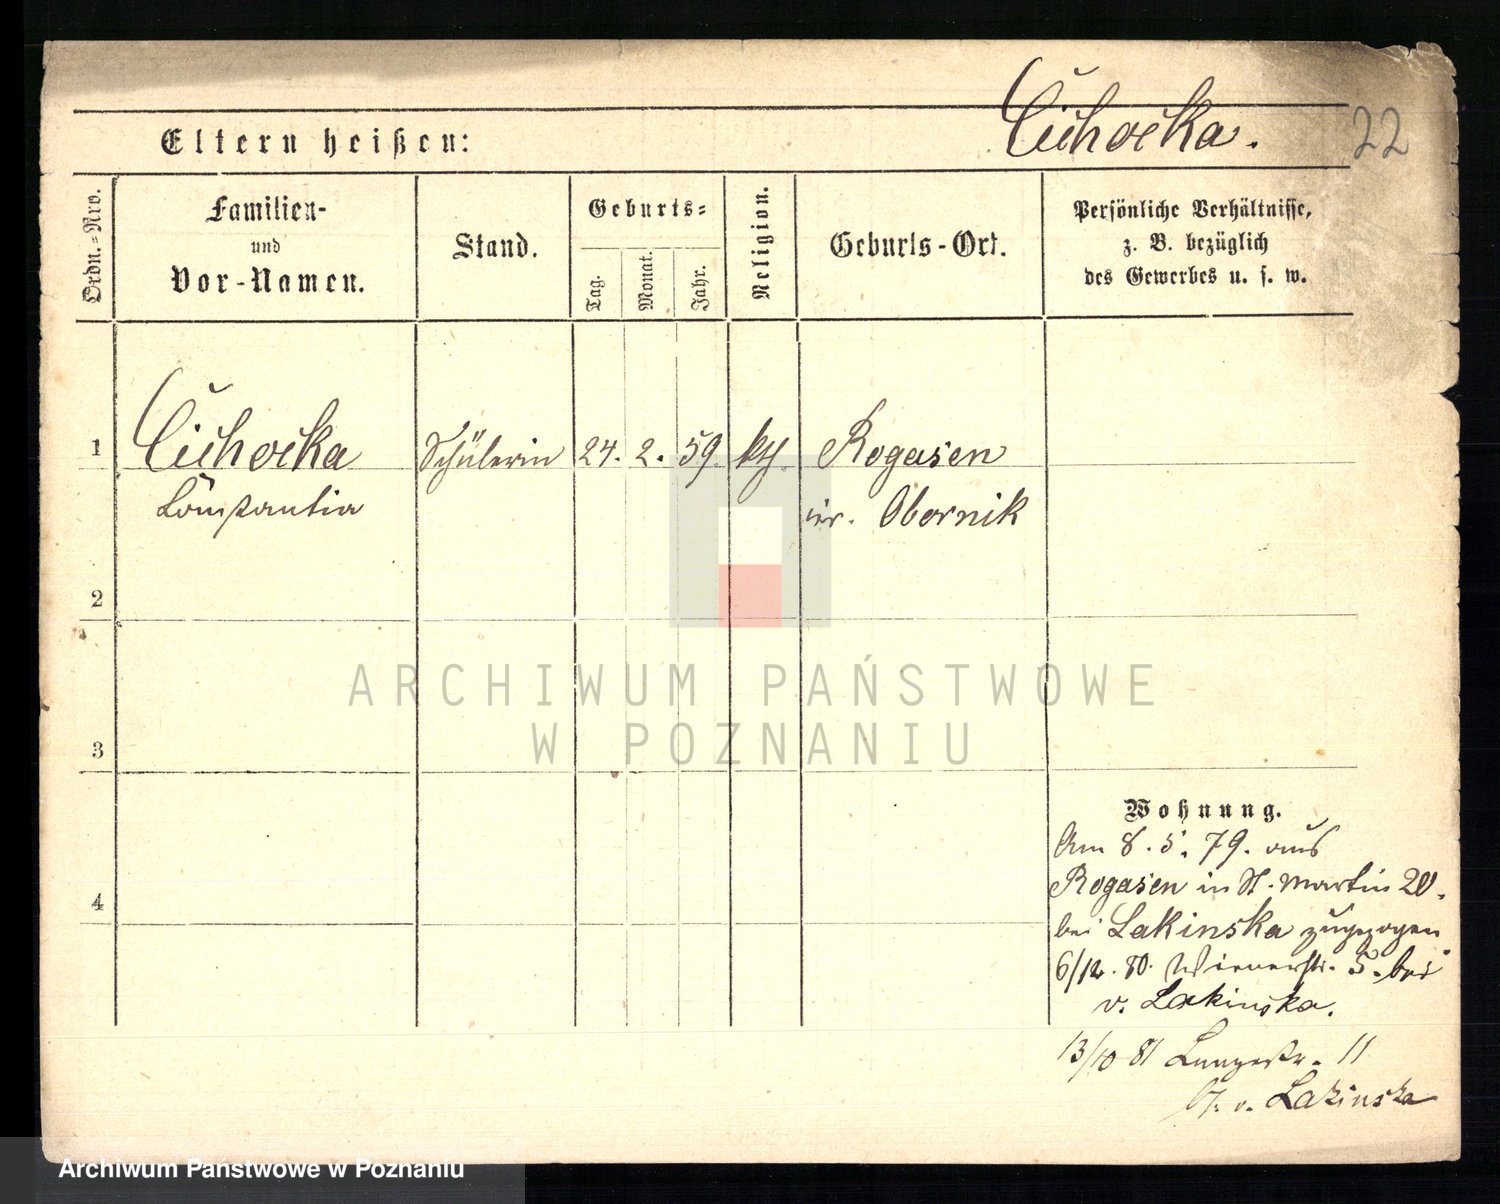 Cichocka. 22
Eltern heißen:
Ordn.=Nro.
Familien-
und
Vor-Namen.
Stand.
Geburts=
Tag.
Monat.
Jahr.
Religion.
Geburts-Ort.
Persönliche Verhältnisse,
z. B. bezüglich
des Gewerbes u. s. w.
1 Cichocka Schülerin 24. 2. 59. kth. Rogasen
Constantia Obornik
2
3
4
Wohnung.
Am 8. 5. 79. aus
Rogasen in St. Martin 20.
bei Lakinska zugezogen
6/12. 80. Wienerstr. 5. bei
v. Lakinska.
13/10 81 Langestr. 11
b. v. Lakinska
ARCHIWUM PAŃSTWOWE
W POZNANIU
Archiwum Państwowe w Poznaniu